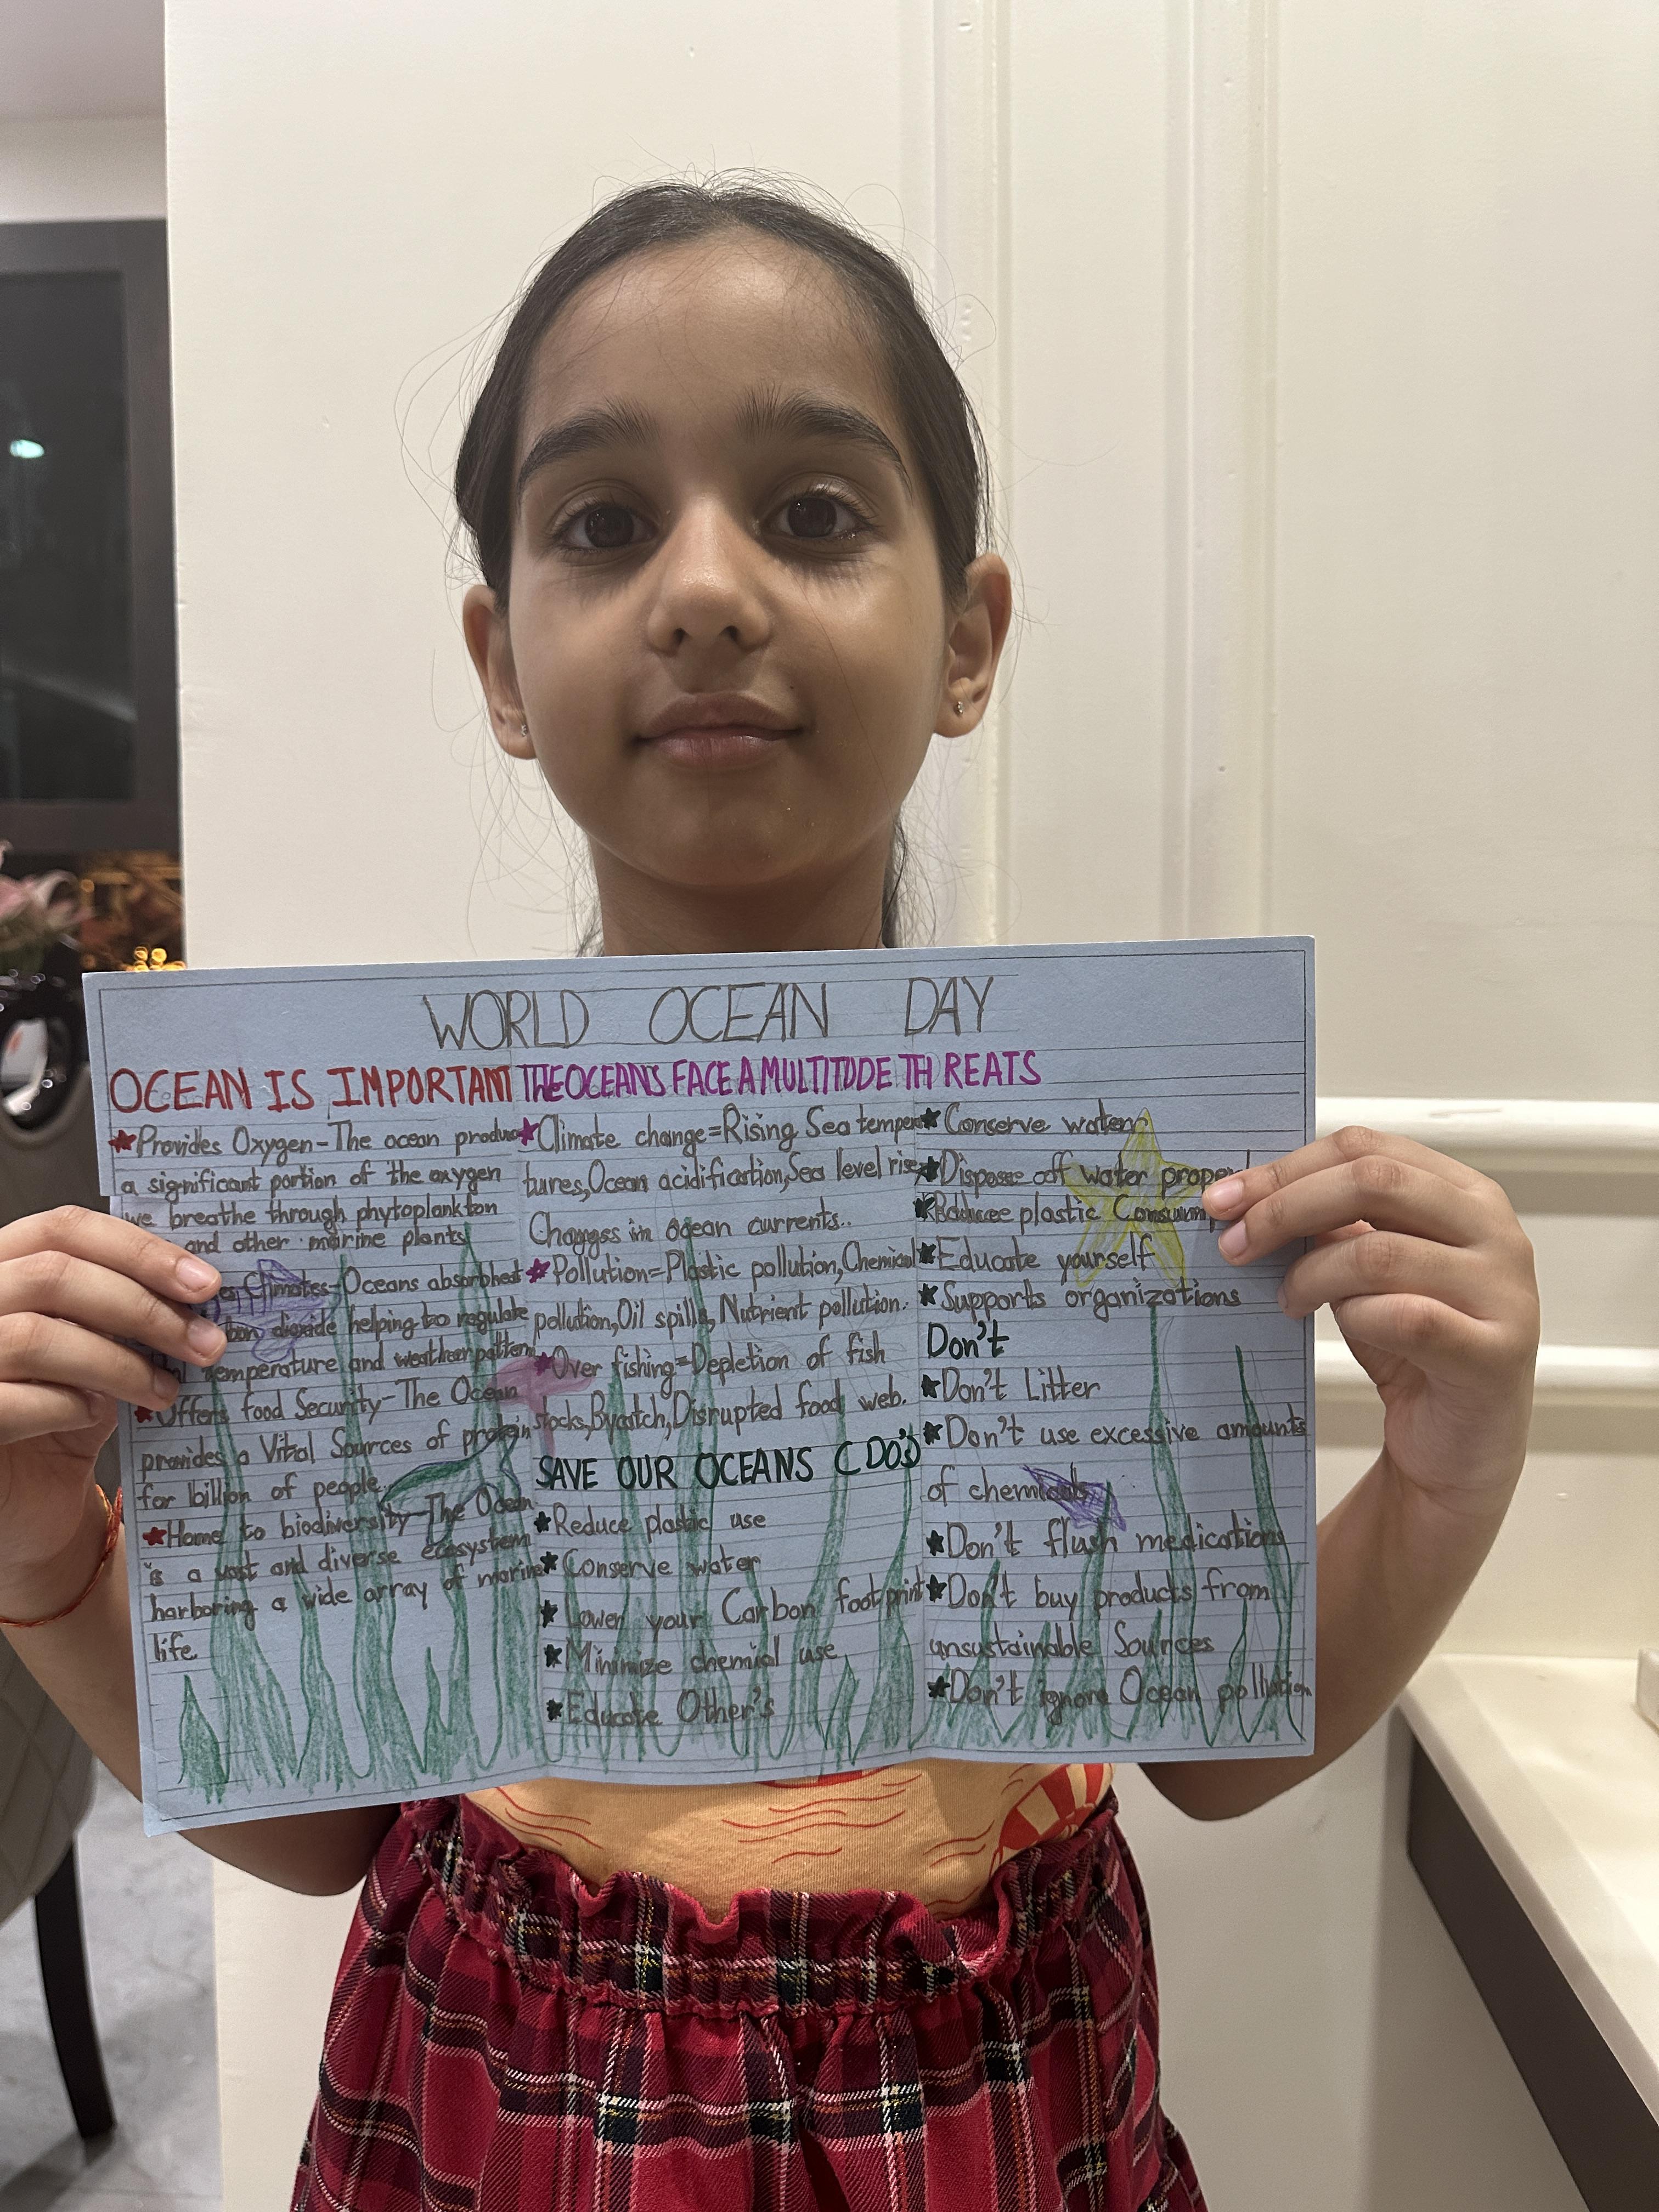 WORLD OCEAN DAY
OCEAN IS IMPORTANT
★Provides Oxygen-The ocean produc
a significant portion of the oxygen
we breathe through phytoplankton
and other marine plants
Climates-Oceans absorbheat
bon dioxide helping to regulate
temperature and weather pattern
★Offers food Security-The Ocean
provides a Vital Sources of protein
for billion of people.
★Home to biodiversity-The Ocean
is a vast and diverse ecosystem
harboring a wide array of marine
life.
THE OCEANS FACE A MULTITUDE THREATS
★Climate change=Rising Sea tempera
tures,Ocean acidification,Sea level rise,
Changes in ocean currents..
★Pollution=Plastic pollution,Chemical
pollution,Oil spills, Nutrient pollution.
★Over fishing=Depletion of fish
stocks,Bycatch,Disrupted food web.
SAVE OUR OCEANS (DO'S)
★Reduce plastic use
★Conserve water
★Lower your Carbon footprint
★Minimize chemial use
★Educate Other's
★Conserve water
★Dispose off water proper
★Reducee plastic Consump
★Educate yourself
★Supports organizations
Don't
★Don't Litter
★Don't use excessive amounts
of chemicals
★Don't flush medications
★Don't buy products from
unsustainable Sources
★Don't ignore Ocean pollution